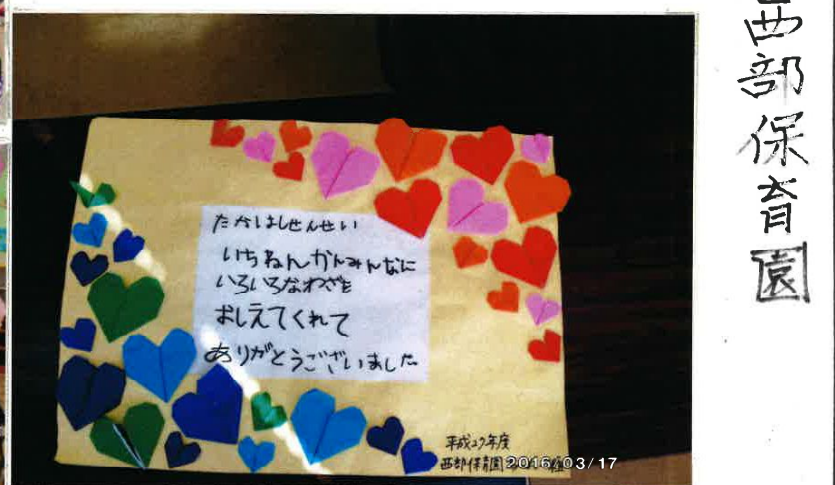 西部保育園
たかはしせんせい
いちねんかんみんなに
いろいろなわざを
おしえてくれて
ありがとうございました
平成27年度
西部保育園
2016/03/17